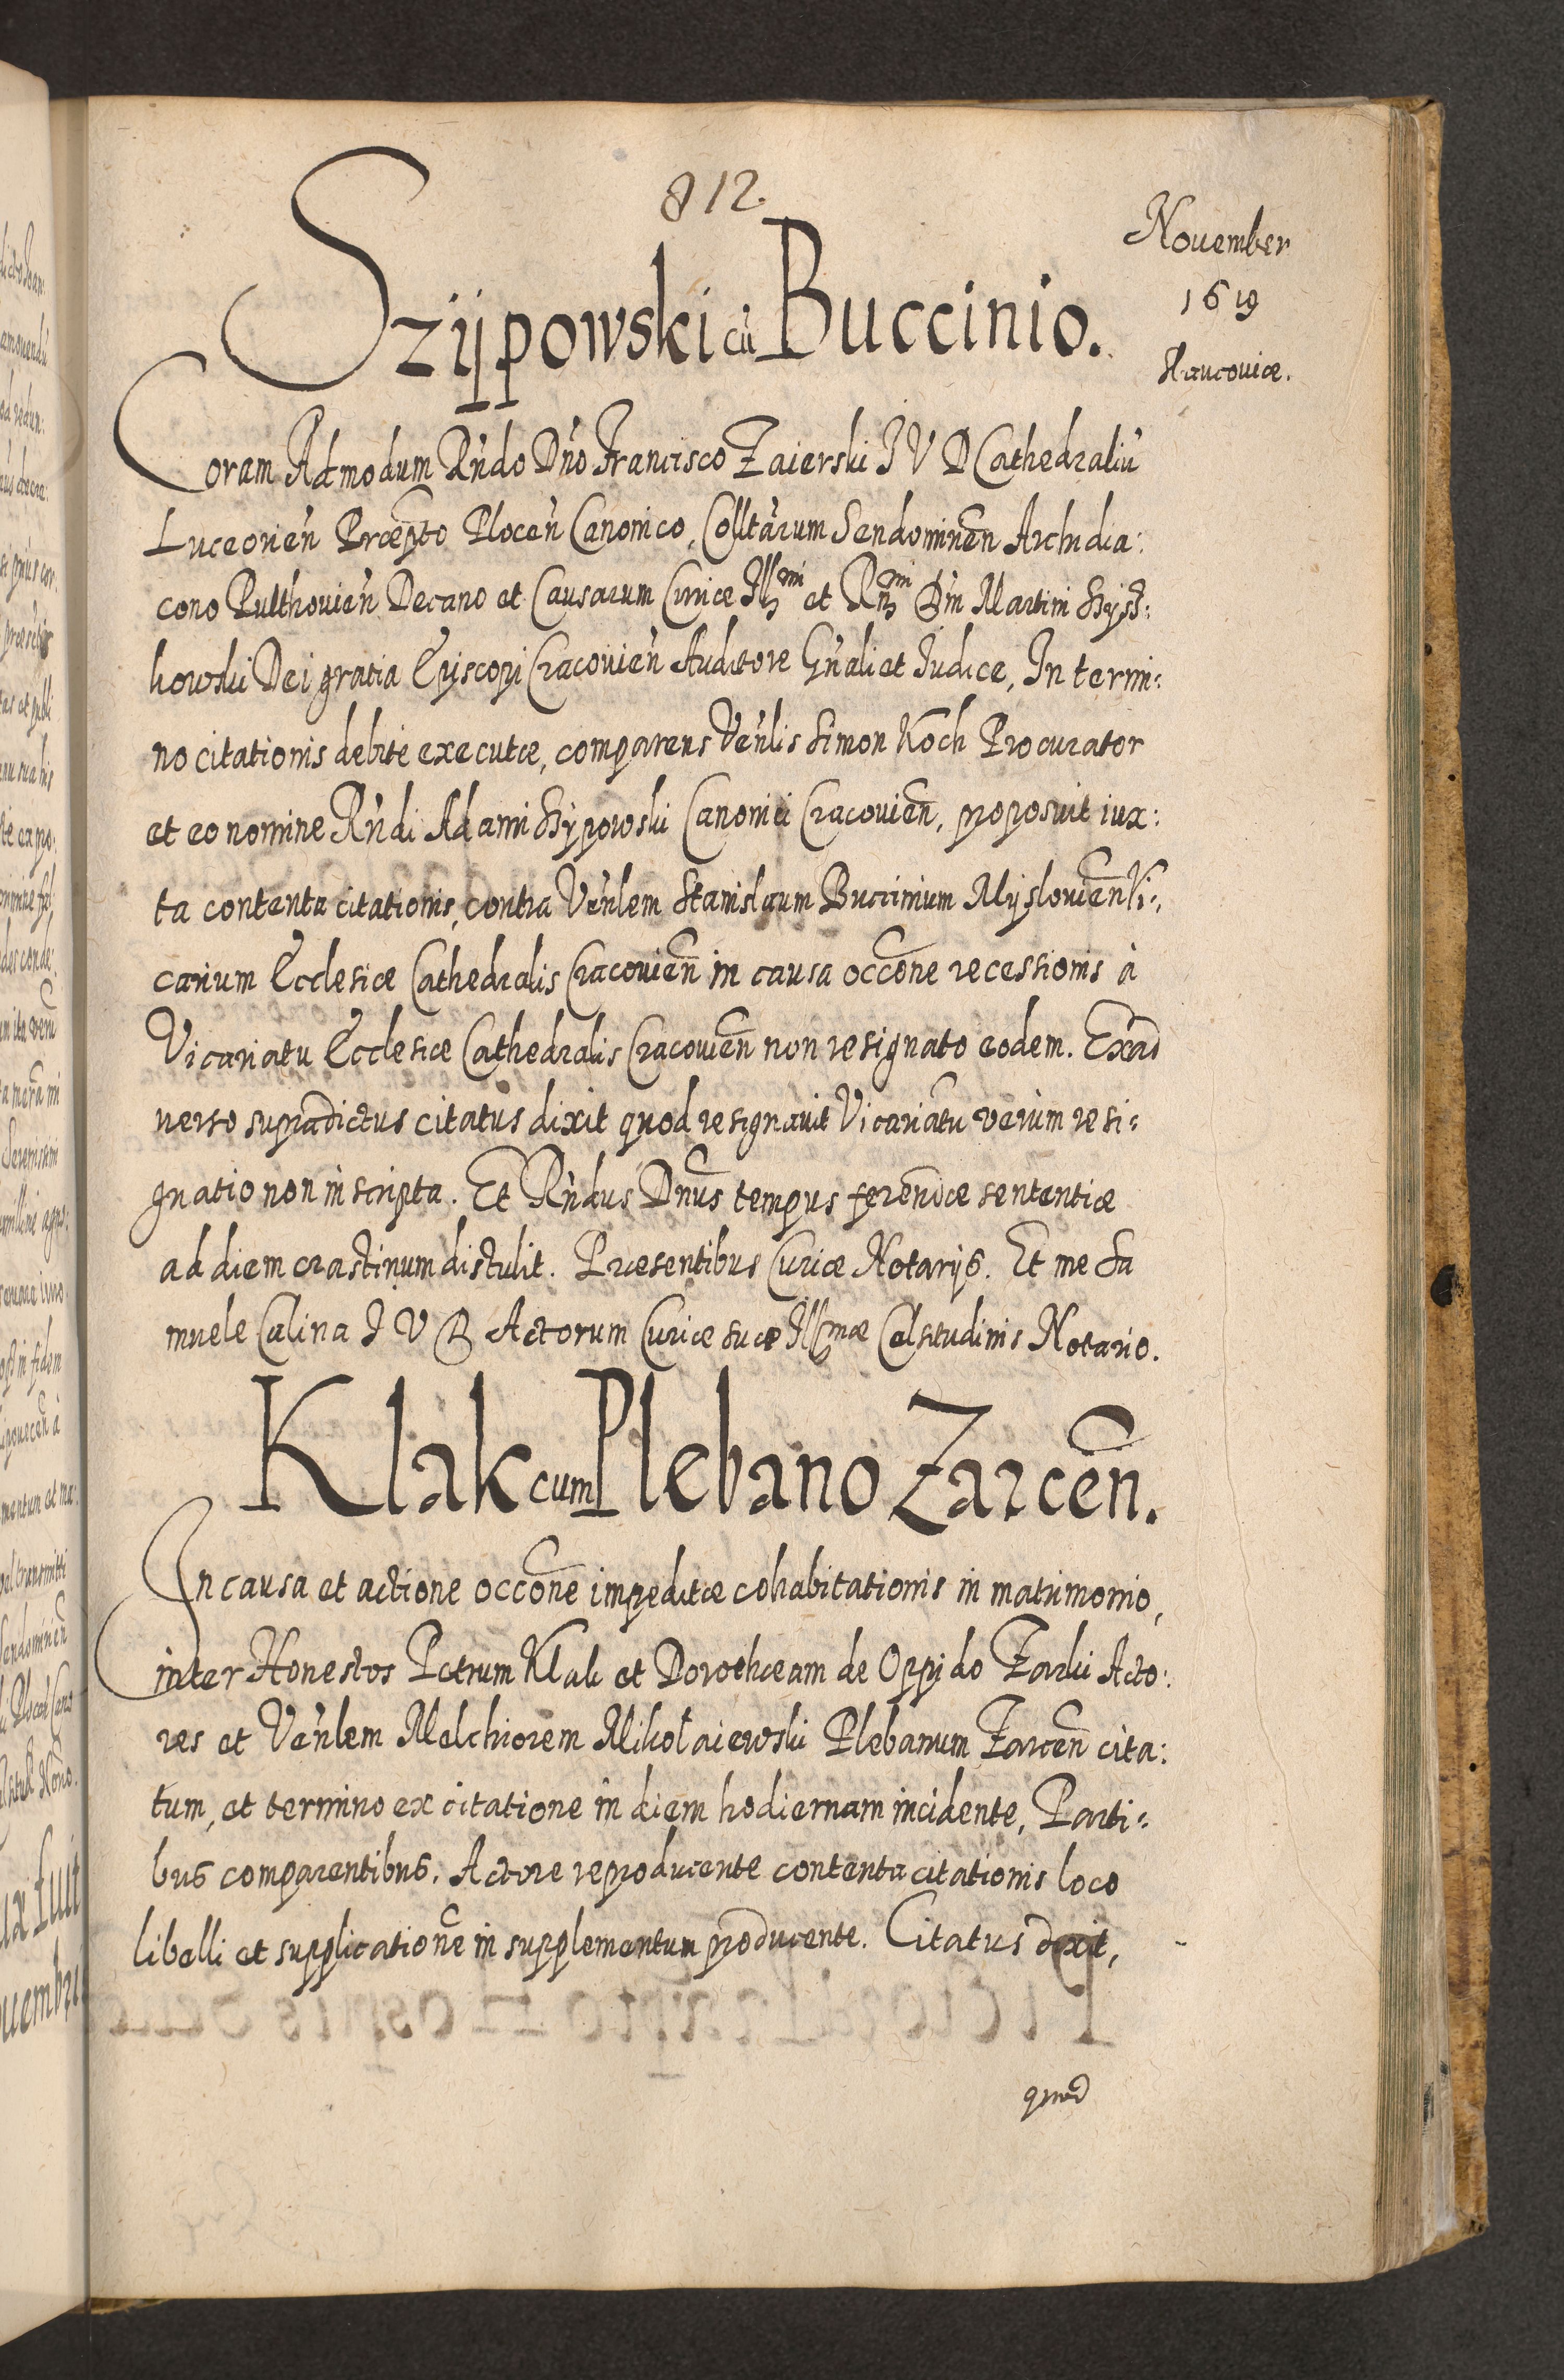 812.
November
1619
Szÿpowski cũ Buccinio.
Coram Admodum Rñdo Dño Francisco Zaierski I V D Cathedraliũ
Luceorieñ Præpto Ploceñ Canonico, Colltarum Sendomirieñ Archidia:
cono Pulthouieñ Decano et Causarum Curiæ Illmi et Rmi Dñi Martini Szysz:
kowski Dei gratia Episcopi Cracouieñ Auditore Gñali et Iudice, In termi:
no citationis debite executæ, comparens Veñlis Simon Koch Procurator
et eo nomine Rñdi Adami Szÿpowski Canonici Cracouieñ, proposuit iux:
ta contenta citationis, contra Veñlem Stanislaum Buccinium Mÿslouieñ Vi:
carium Ecclesiæ Cathedralis Cracouieñ in causa occõne recessionis à
Vicariatu Ecclesiæ Cathedralis Cracouieñ non resignato eodem. Ex ad
uerso supradictus citatus dixit quod resignauit Vicariatu verùm resi:
gnatio non inscripta. Et Rñdus Dnus tempus ferendæ sententiæ
ad diem crastinum distulit. Præsentibus Curiæ Notarijs. Et me Sa
muele Calina I V D Actorum Curiæ suæ Illmæ Celsitudinis Notario.
Klak cum Plebano Zarceñ.
In causa et actione occõne impeditæ cohabitationis in matrimonio,
inter Honestos Petrum Klak et Dorotheam de Oppido Zarki Acto:
res et Veñlem Melchiorem Mikołaiewski Plebanum Zarceñ cita:
tum, et termino ex citatione in diem hodiernam incidente, Parti:
bus comparentibus. Actore reproducente contenta citationis loco
libelli et supplicationẽ in supplementum producente. Citatus dixit,
quod